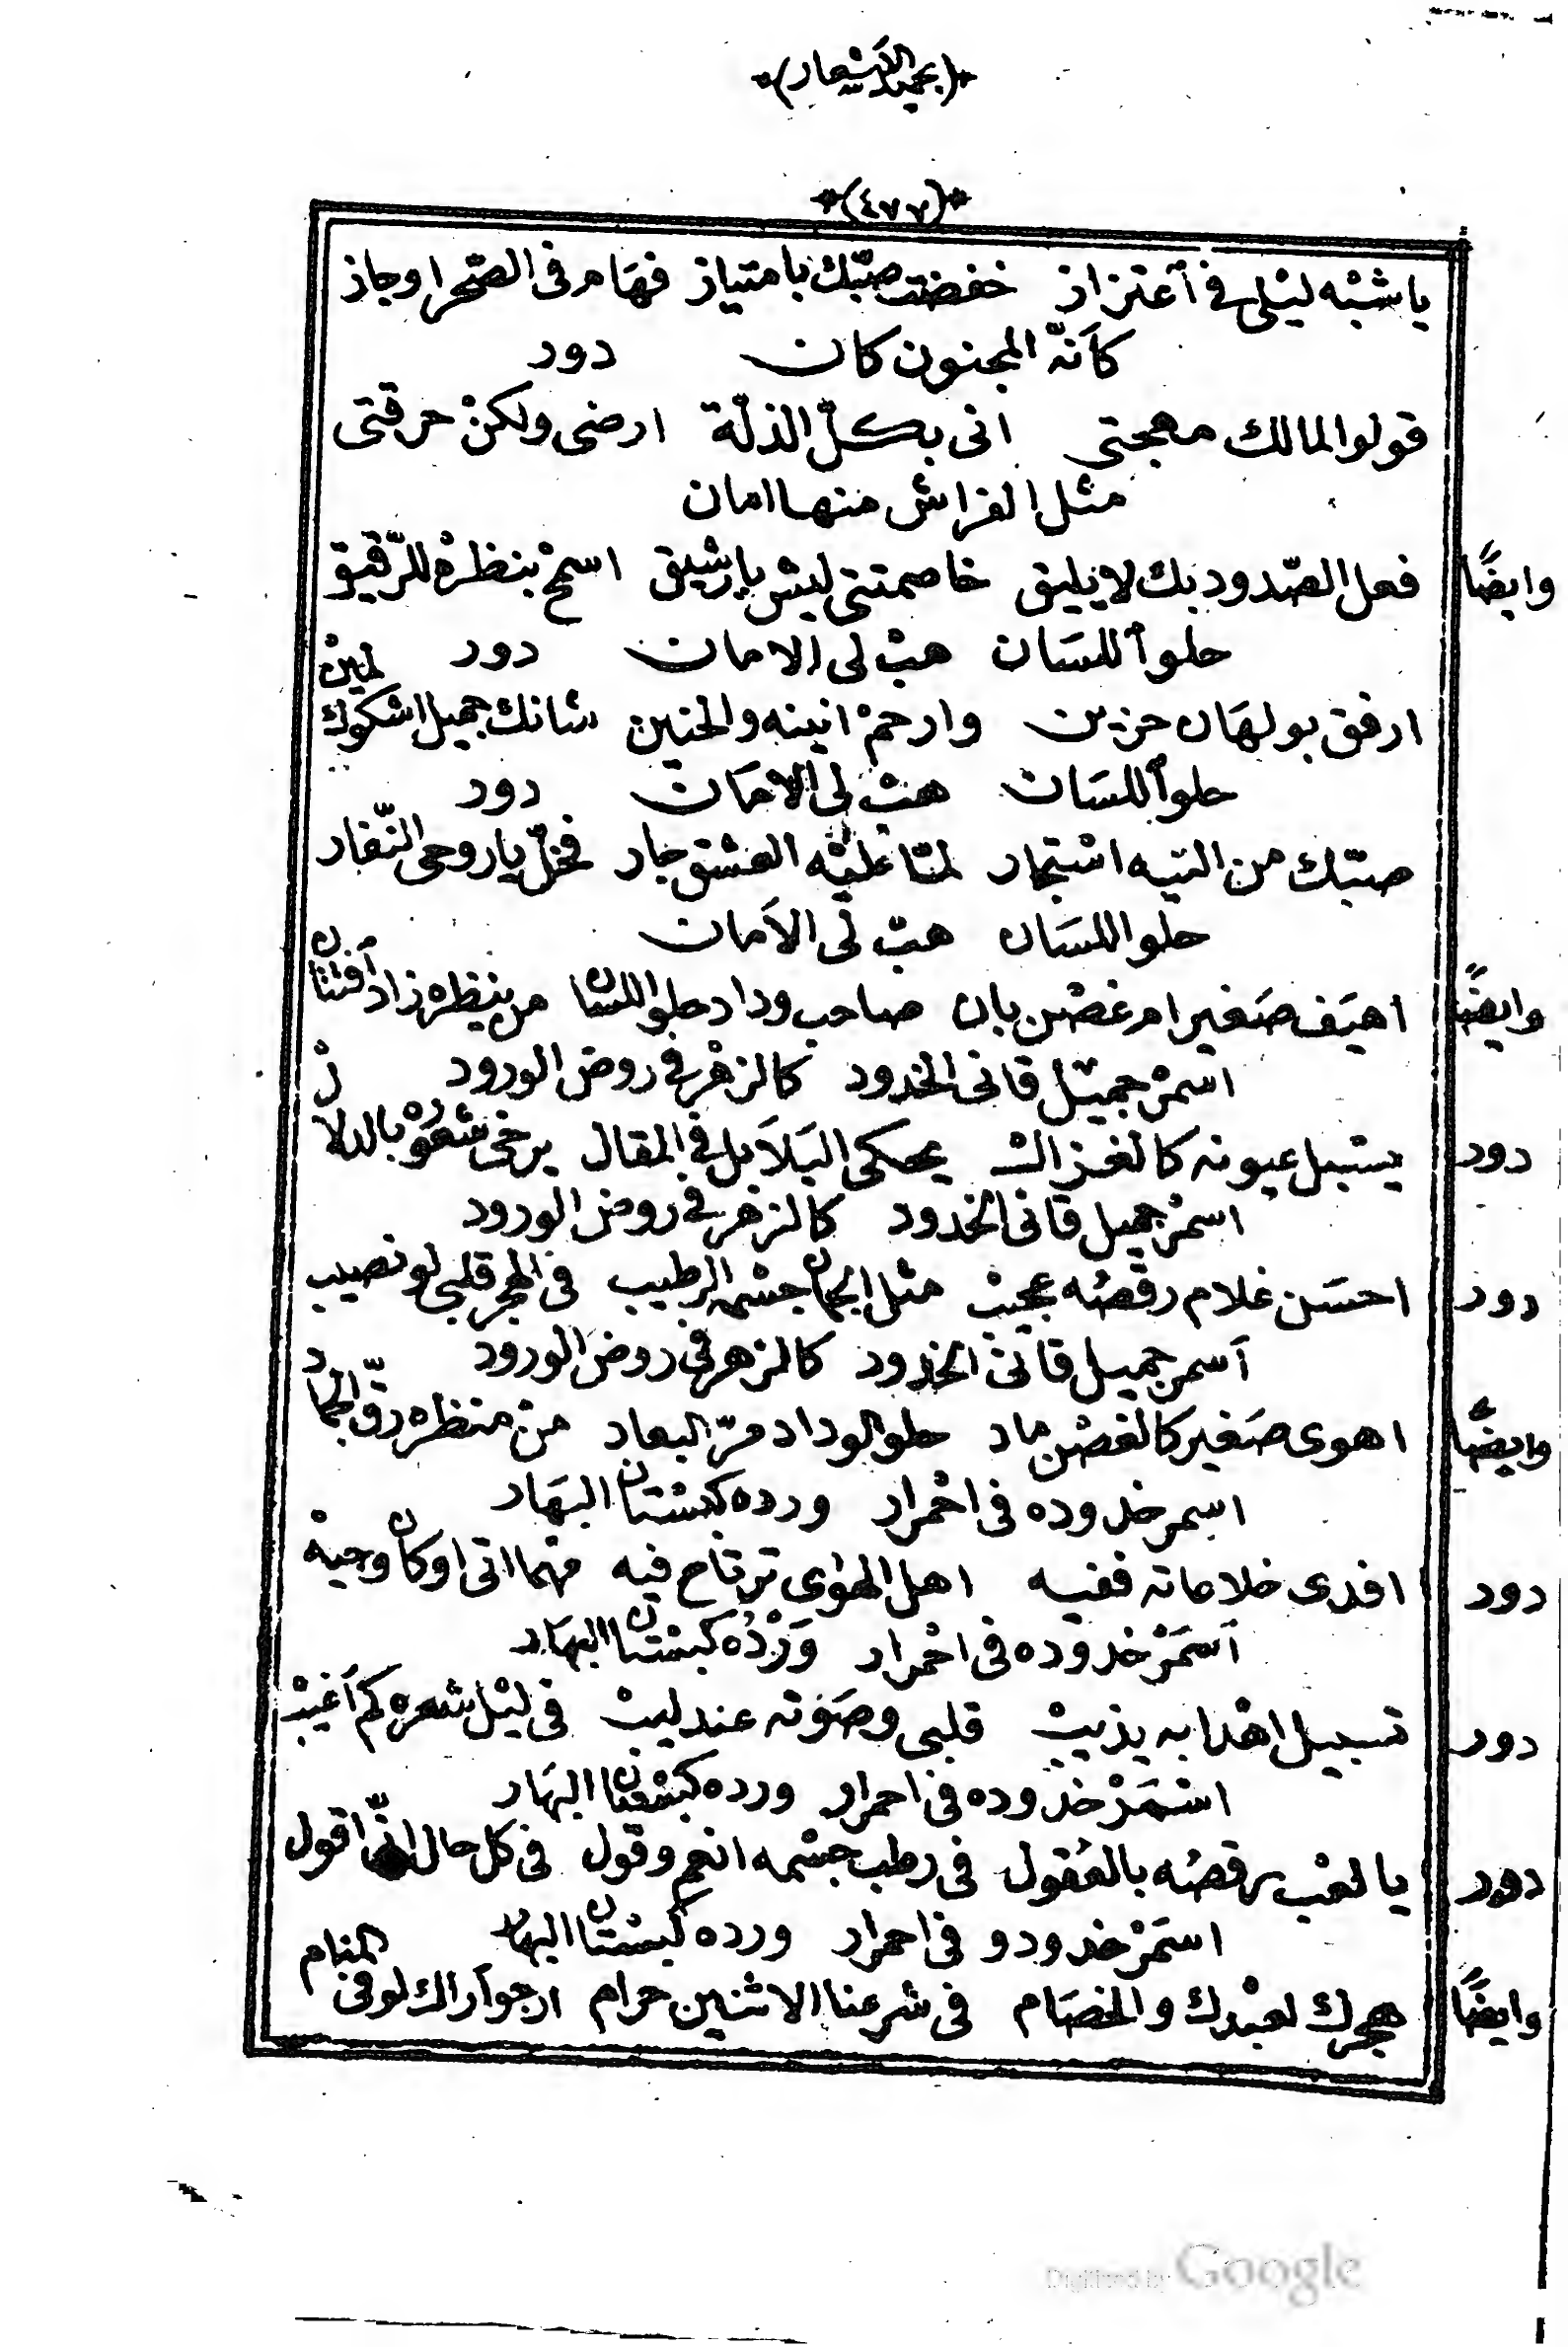 (بحميد الاشعار)
(٤٧٧)
يا شبْه ليْلى في اعتزاز خفضت صبّك بامتياز فهَام في الصّحرا وجاز
كأنّه المجنون كان دور
قولوا لمالك مهجتي اني بكلّ الذلّة ارضى ولكنْ حرقتي
مثل الفراش منها امان
وايضًا فعل الصّدود بك لا يليق خاصمتني ليش يا رشيق اسمحْ بنظرهْ للرّقيق
حلو اللسَان هبْ لي الامان دور
ارفق بولهَان حزين وارحمْ انينه والحنين شانك جميل اشكوك لمينْ
حلو اللسَان هبْ لي الامَان دور
صبّك من التيه اسْتجار لمّا عليْه العشق جار فخلّ يا روحي النّفار
حلو اللسَان هبْ لي الاَمان
وايضًا اهيَف صَغير ام غصْن بان صاحب وداد حلو اللسان من ينظره زاد افتنان
اسمرْ جميْل قاني الخدود كالزهْر في روض الورود
دور يسْبل عيونه كالغزال يحكي البَلاَبل في المقال يرخي شعوره بالدلال
اسمرْ جميل قاني الخدود كالزهْر في روض الورود
دور احسَن غلام رقصُه عجيبْ مثل الجمان جسْمه الرطيب في الهجر قلبي لو نصيب
اَسمر جميل قاني الخدود كالزهر في روض الورود
وايضًا اهوى صَغير كالغصْن ماد حلو الوداد مرّ البعاد منْ منظره رقّ الجماد
اسمر خدوده في احْمرار ورده كبستان البهَار
دور افدي خلاعاته ففيه اهل الهوٰى ترتاح فيه مهما اتى او كان وجيهْ
اَسمَرْ خدوده في احْمرار وَرْدُه كبسْتان البهَار
دور تسبيل اهْدابه يذيبْ قلبي وصَوْته عندليبْ في ليْل شعره كم اَغيبْ
اسْمَرْ خدوده في احمرار ورده كبسْتان البهَار
دور يا لعْب رقصُه بالعُقول في رطب جسْمه انعم وقول في كل حال انّي اقول
اسمَرْ خدودو في احمرار ورده كبسْتان البهار
وايضًا هجرك لعبْدك والخصَام في شرعنا الاثنين حرام ارجو اراك لو في المنام
Digitized by Google